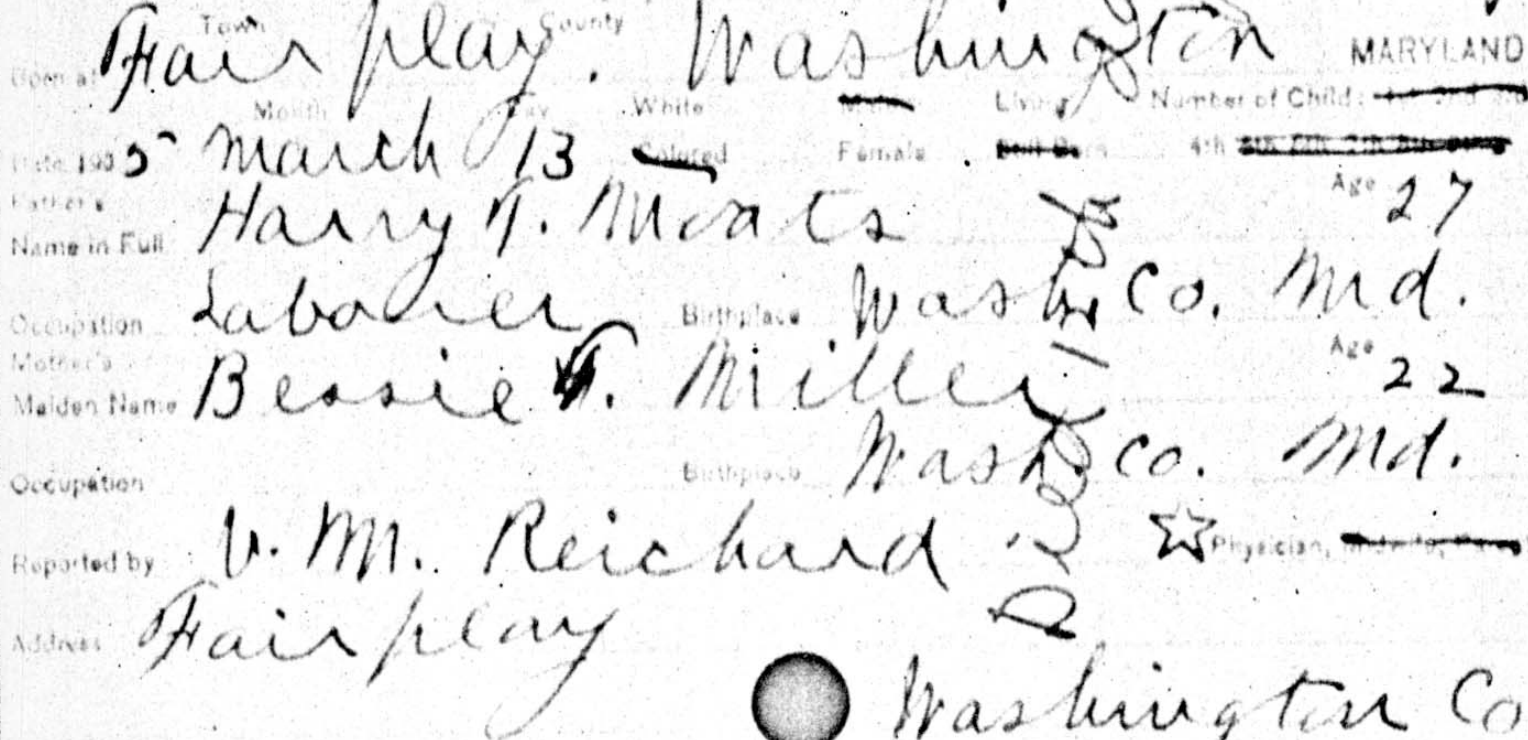 Town County
Born at Fairplay. Washington MARYLAND
Month Day White Male Living Number of Child: 1st 2nd 3rd
Date 1905 March 13 Colored Female Still Born 4th
Father's Age 27
Name in Full Harry T. Moats
Occupation Laborer Birthplace Wash. Co. Md.
Mother's Age 22
Maiden Name Bessie T. Miller
Occupation Birthplace Wash. Co. Md.
Reported by V. M. Reichard Physician, Midwife,
Address Fairplay
Washington Co